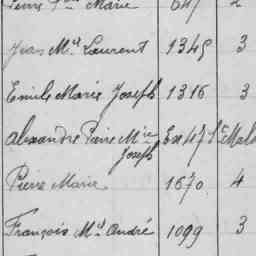 Pierre Marie 647 2
Jean Mie Laurent 1345 3
Emile Marie Joseph 1316 3
Alexandre Pierre Mie Ex 47 St Malo
Joseph
Pierre Marie 1670 4
François Mie André 1099 3